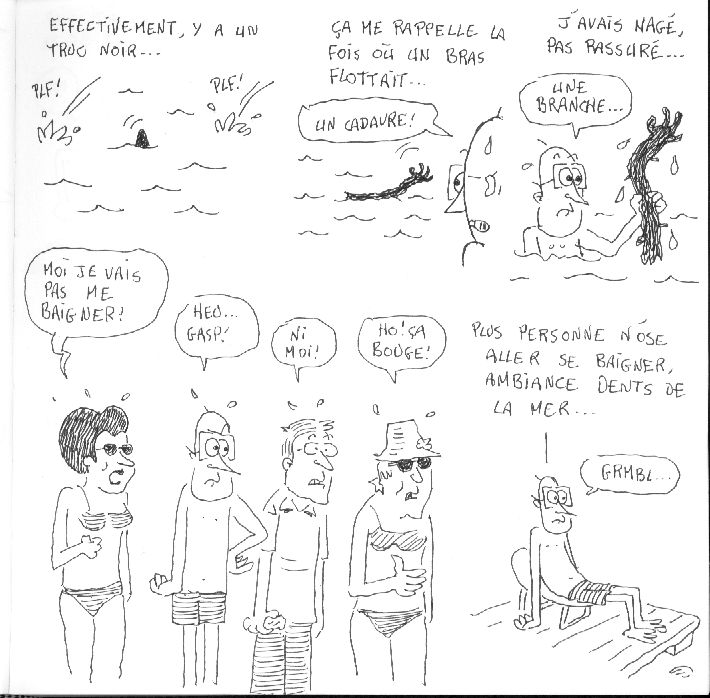 EFFECTIVEMENT, Y A UN
TRUC NOIR...
PLF!
PLF!
ÇA ME RAPPELLE LA
FOIS OÙ UN BRAS
FLOTTAIT...
UN CADAVRE!
J'AVAIS NAGÉ,
PAS RASSURÉ...
UNE
BRANCHE...
MOI JE VAIS
PAS ME
BAIGNER!
HEU...
GASP!
NI
MOI!
HO! ÇA
BOUGE!
PLUS PERSONNE N'OSE
ALLER SE BAÎGNER,
AMBIANCE DENTS DE
LA MER...
GRMBL...